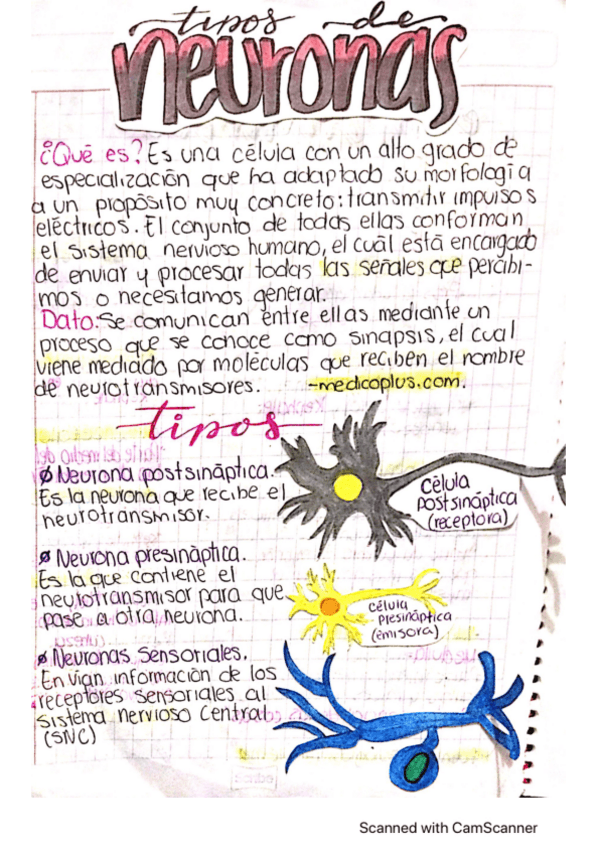 tipos de
neuronas
¿Qué es? Es una célula con un alto grado de
especialización que ha adaptado su morfología
a un propósito muy concreto: transmitir impulsos
eléctricos. El conjunto de todas ellas conforman
el sistema nervioso humano, el cuál está encargado
de enviar y procesar todas las señales que percibi-
mos o necesitamos generar.
Dato: Se comunican entre ellas mediante un
proceso que se conoce como sinapsis, el cual
viene mediado por moléculas que reciben el nombre
de neurotransmisores. -medicoplus.com.
tipos
Ø Neurona postsináptica.
Es la neurona que recibe el
neurotransmisor.
célula
postsináptica
(receptora)
Ø Neurona presináptica.
Es la que contiene el
neurotransmisor para que
pase a otra neurona.
célula
presináptica
(emisora)
Ø Neuronas sensoriales.
Envían información de los
receptores sensoriales al
sistema nervioso central
(SNC)
Scanned with CamScanner